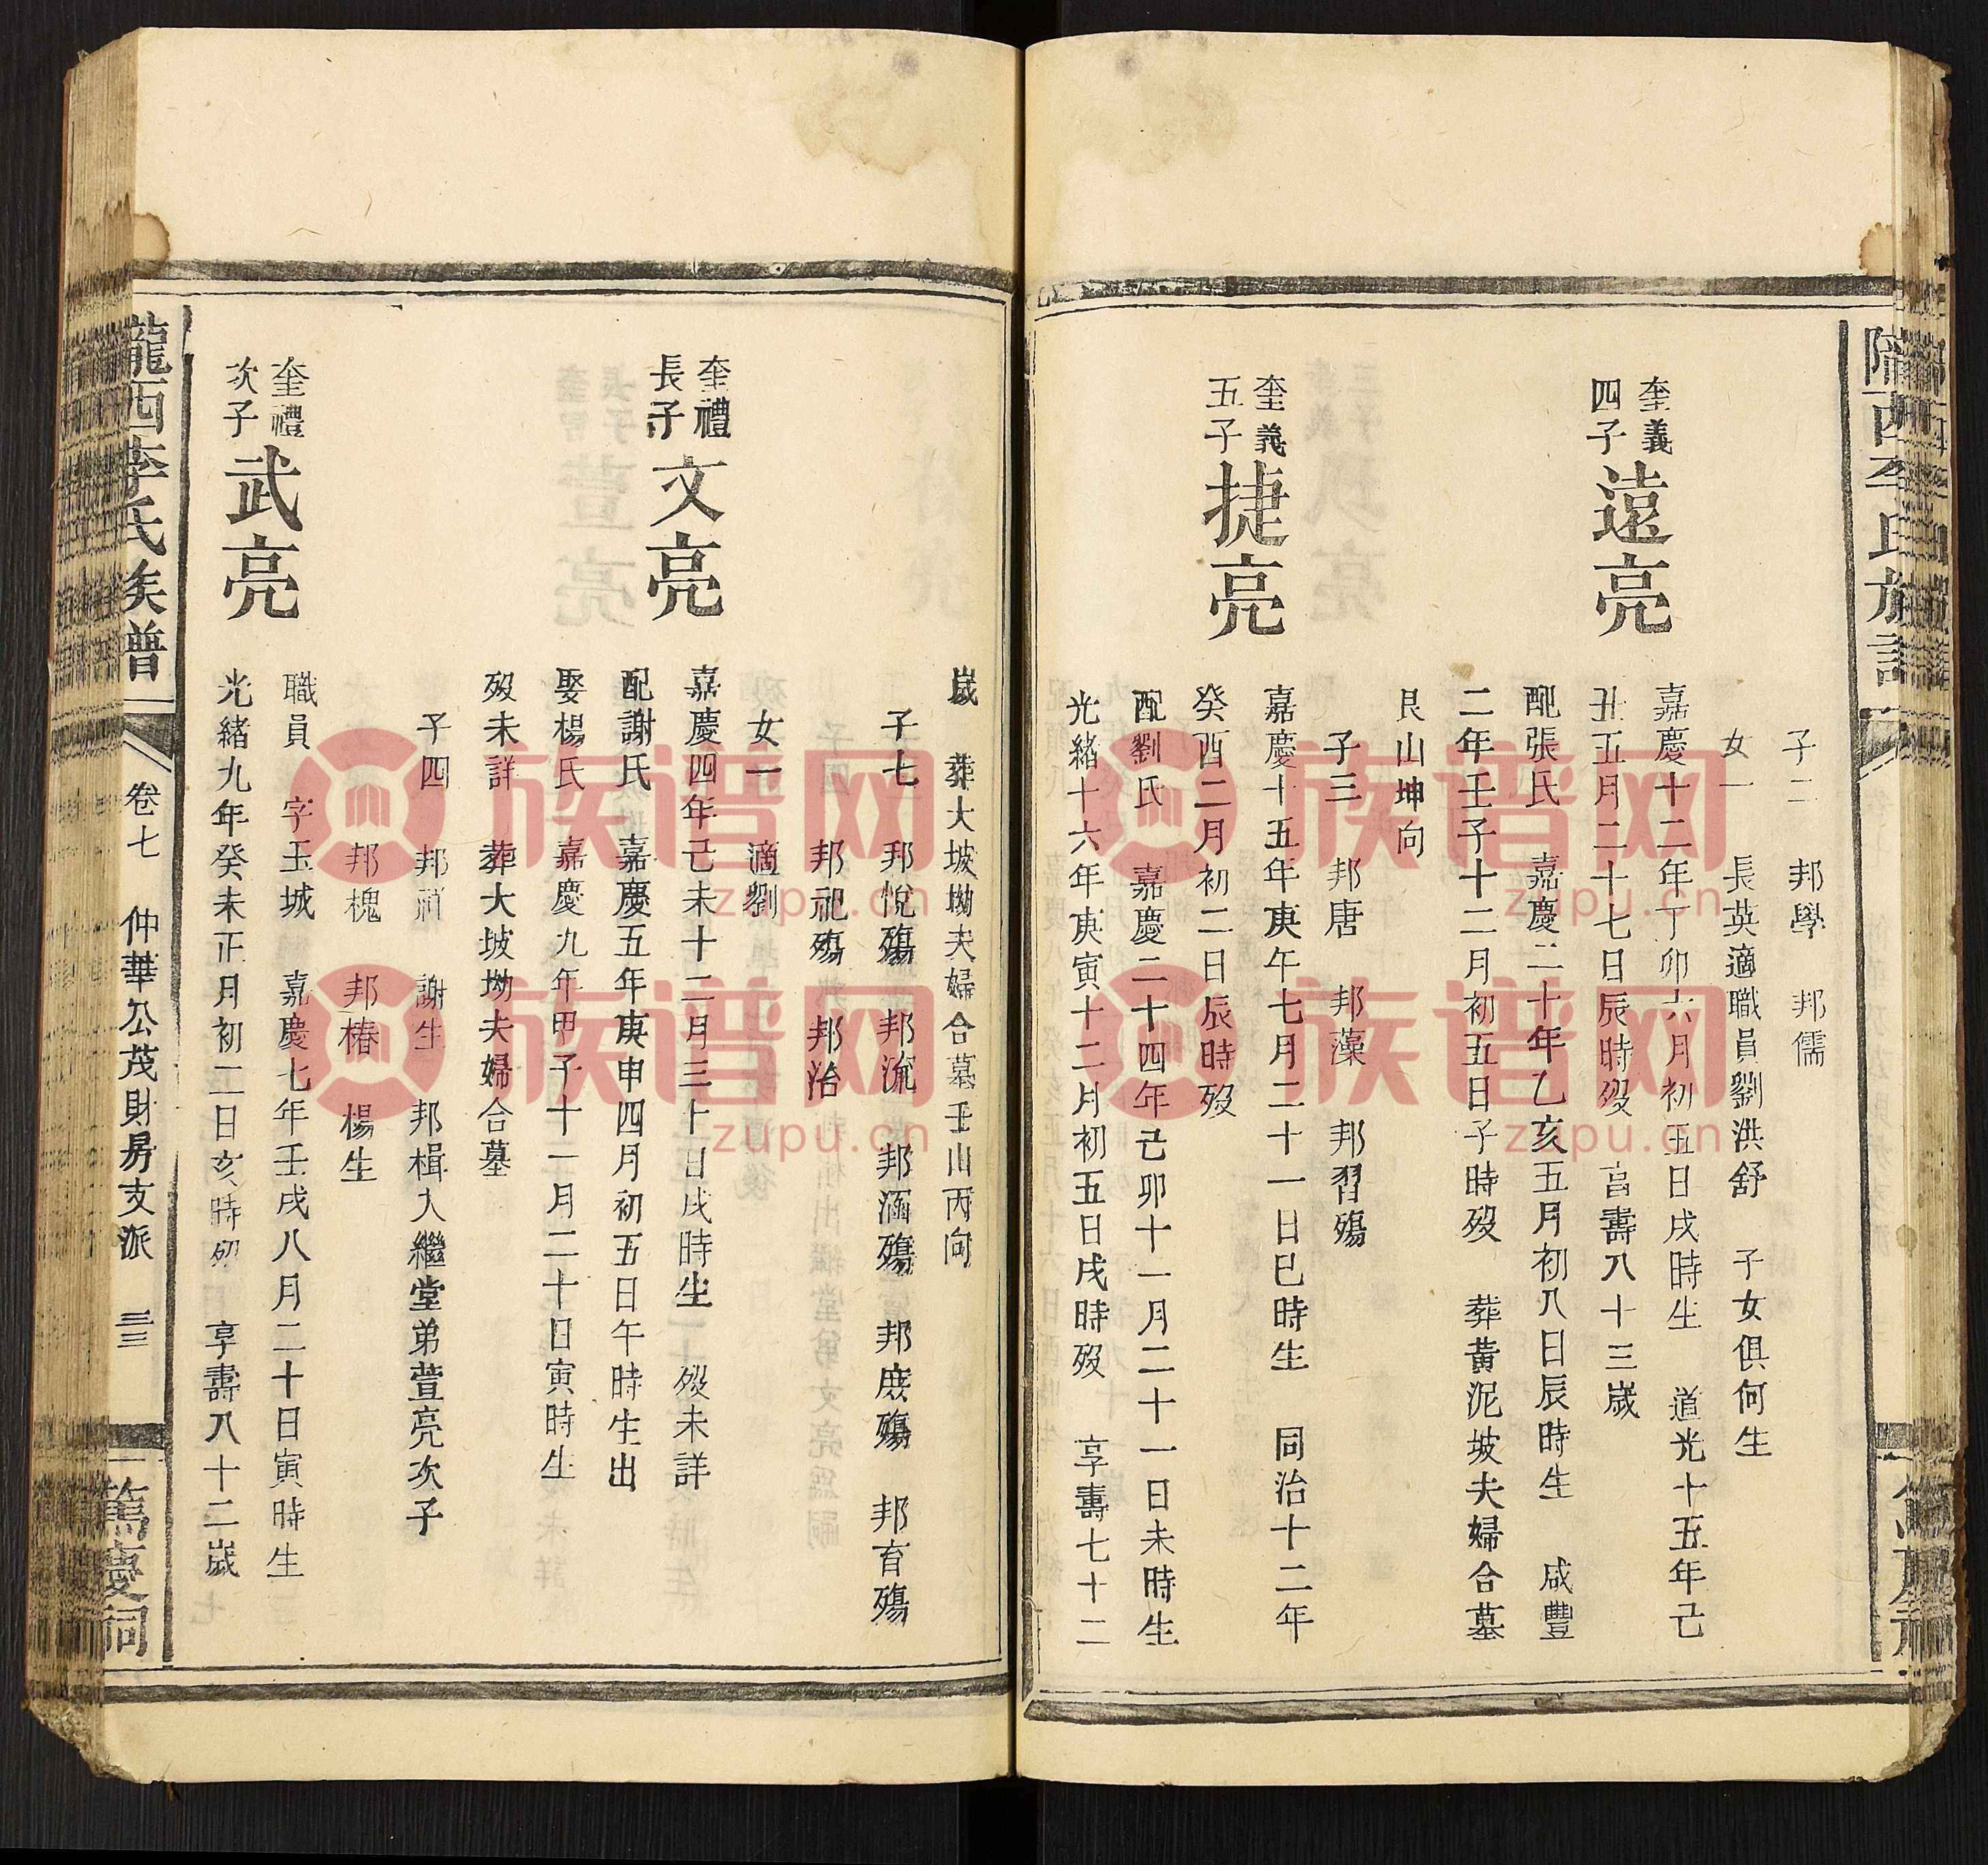 隴西李氏族譜
子二 邦學 邦儒
女一 長英適職員劉洪舒 子女俱何生
奎義
四子
遠亮
嘉慶十二年丁卯六月初五日戌時生 道光十五年己
丑五月二十七日辰時歿 享壽八十三歲
配張氏 嘉慶二十年乙亥五月初八日辰時生 咸豐
二年壬子十二月初五日子時歿 葬黃泥坡夫婦合墓
艮山坤向
子三 邦唐 邦藻 邦習殤
奎義
五子
捷亮
嘉慶十五年庚午七月二十一日巳時生 同治十二年
癸酉二月初二日辰時歿
配劉氏 嘉慶二十四年己卯十一月二十一日未時生
光緒十六年庚寅十二月初五日戌時歿 享壽七十二
歲 葬大坡坳夫婦合墓壬山丙向
子七 邦悅殤 邦流 邦涵殤 邦庶殤 邦育殤
邦祀殤 邦治
女一 適劉
奎禮
長子
文亮
嘉慶四年己未十二月三十日戌時生 歿未詳
配謝氏 嘉慶五年庚申四月初五日午時生出
娶楊氏 嘉慶九年甲子十一月二十日寅時生
歿未詳 葬大坡坳夫婦合墓
子四 邦 謝生 邦楫入繼堂弟萱亮次子
邦槐 邦椿 楊生
奎禮
次子
武亮
職員 字玉城 嘉慶七年壬戌八月二十日寅時生
光緒九年癸未正月初二日亥時歿 享壽八十二歲
隴西李氏族譜
卷七 仲華公茂財房支派 三三
篤慶祠
族谱网
zupu.cn
族谱网
zupu.cn
族谱网
zupu.cn
族谱网
zupu.cn